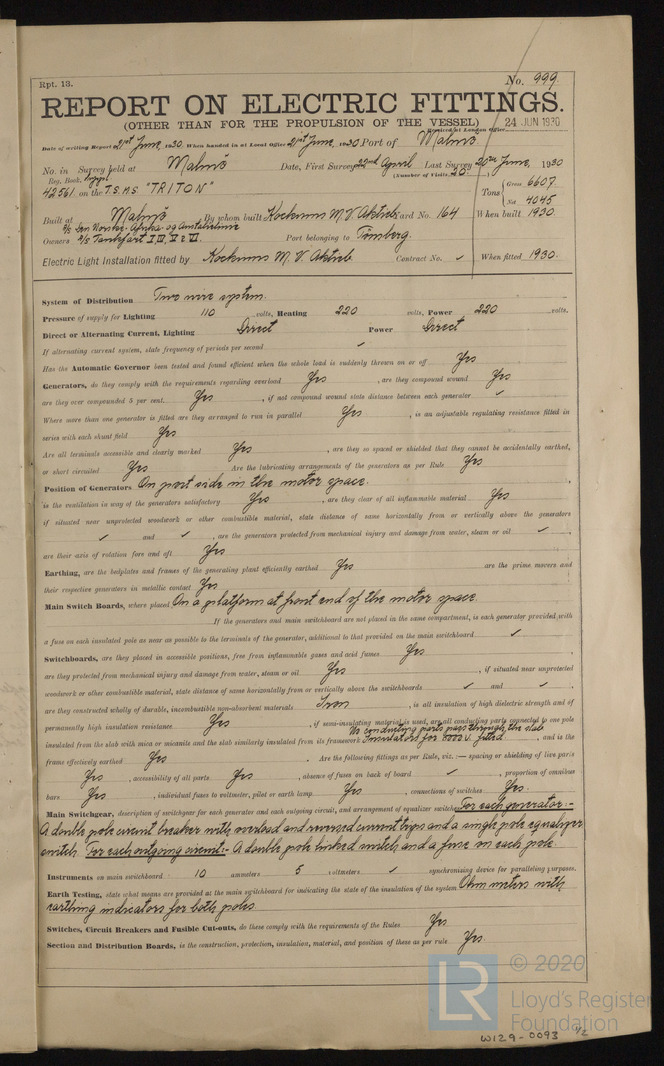 Rpt. 13.
No. 999
REPORT ON ELECTRIC FITTINGS.
(OTHER THAN FOR THE PROPULSION OF THE VESSEL)
24 JUN 1930
Received at London Office
Date of writing Report 21st June, 1930 When handed in at Local Office 21st June, 1930 Port of Malmö
No. in Survey held at Malmö Date, First Survey 22nd April Last Survey 20th June, 1930
Reg. Book. (Number of Visits 20)
42561 on the T.S.M.S "TRITON" Tons { Gross 6607
Net 4045
Built at Malmö By whom built Kockums M. V. Aktieb Yard No. 164 When built 1930
Owners A/S Den Norske Afrika og Australielinie
A/S Tankfart I, IV, V & VI. Port belonging to Tönsberg.
Electric Light Installation fitted by Kockums M. V. Aktieb Contract No. ✓ When fitted 1930.
System of Distribution Two wire system.
Pressure of supply for Lighting 110 volts, Heating 220 volts, Power 220 volts.
Direct or Alternating Current, Lighting Direct Power Direct
If alternating current system, state frequency of periods per second ✓
Has the Automatic Governor been tested and found efficient when the whole load is suddenly thrown on or off Yes
Generators, do they comply with the requirements regarding overload Yes, are they compound wound Yes
are they over compounded 5 per cent. Yes, if not compound wound state distance between each generator ✓
Where more than one generator is fitted are they arranged to run in parallel Yes, is an adjustable regulating resistance fitted in
series with each shunt field Yes
Are all terminals accessible and clearly marked Yes, are they so spaced or shielded that they cannot be accidentally earthed,
or short circuited Yes Are the lubricating arrangements of the generators as per Rule Yes
Position of Generators On port side in the motor space.
is the ventilation in way of the generators satisfactory Yes, are they clear of all inflammable material Yes,
if situated near unprotected woodwork or other combustible material, state distance of same horizontally from or vertically above the generators
✓ and ✓, are the generators protected from mechanical injury and damage from water, steam or oil ✓,
are their axis of rotation fore and aft Yes
Earthing, are the bedplates and frames of the generating plant efficiently earthed Yes are the prime movers and
their respective generators in metallic contact Yes
Main Switch Boards, where placed On a platform at front end of the motor space
If the generators and main switchboard are not placed in the same compartment, is each generator provided with
a fuse on each insulated pole as near as possible to the terminals of the generator, additional to that provided on the main switchboard ✓
Switchboards, are they placed in accessible positions, free from inflammable gases and acid fumes Yes,
are they protected from mechanical injury and damage from water, steam or oil Yes, if situated near unprotected
woodwork or other combustible material, state distance of same horizontally from or vertically above the switchboards ✓ and ✓,
are they constructed wholly of durable, incombustible non-absorbent materials Iron, is all insulation of high dielectric strength and of
permanently high insulation resistance Yes, if semi-insulating material is used, are all conducting parts connected to one pole
No conducting parts pass through the slab
insulated from the slab with mica or micanite and the slab similarly insulated from its framework Insulators for 8000 V. fitted, and is the
frame effectively earthed Yes. Are the following fittings as per Rule, viz.:— spacing or shielding of live parts
Yes, accessibility of all parts Yes, absence of fuses on back of board ✓, proportion of omnibus
bars Yes, individual fuses to voltmeter, pilot or earth lamp Yes, connections of switches Yes.
Main Switchgear, description of switchgear for each generator and each outgoing circuit, and arrangement of equalizer switches For each generator:-
A double pole circuit breaker with overload and reversed current trips and a single pole equalizer
switch. For each outgoing circuit:- A double pole linked switch and a fuse in each pole.
Instruments on main switchboard 10 ammeters 5 voltmeters ✓ synchronising device for paralleling purposes.
Earth Testing, state what means are provided at the main switchboard for indicating the state of the insulation of the system Ohm meters with
earthing indicators for both poles
Switches, Circuit Breakers and Fusible Cut-outs, do these comply with the requirements of the Rules Yes
Section and Distribution Boards, is the construction, protection, insulation, material, and position of these as per rule Yes
LR © 2020
Lloyd's Register
Foundation
W129-0093 1/2